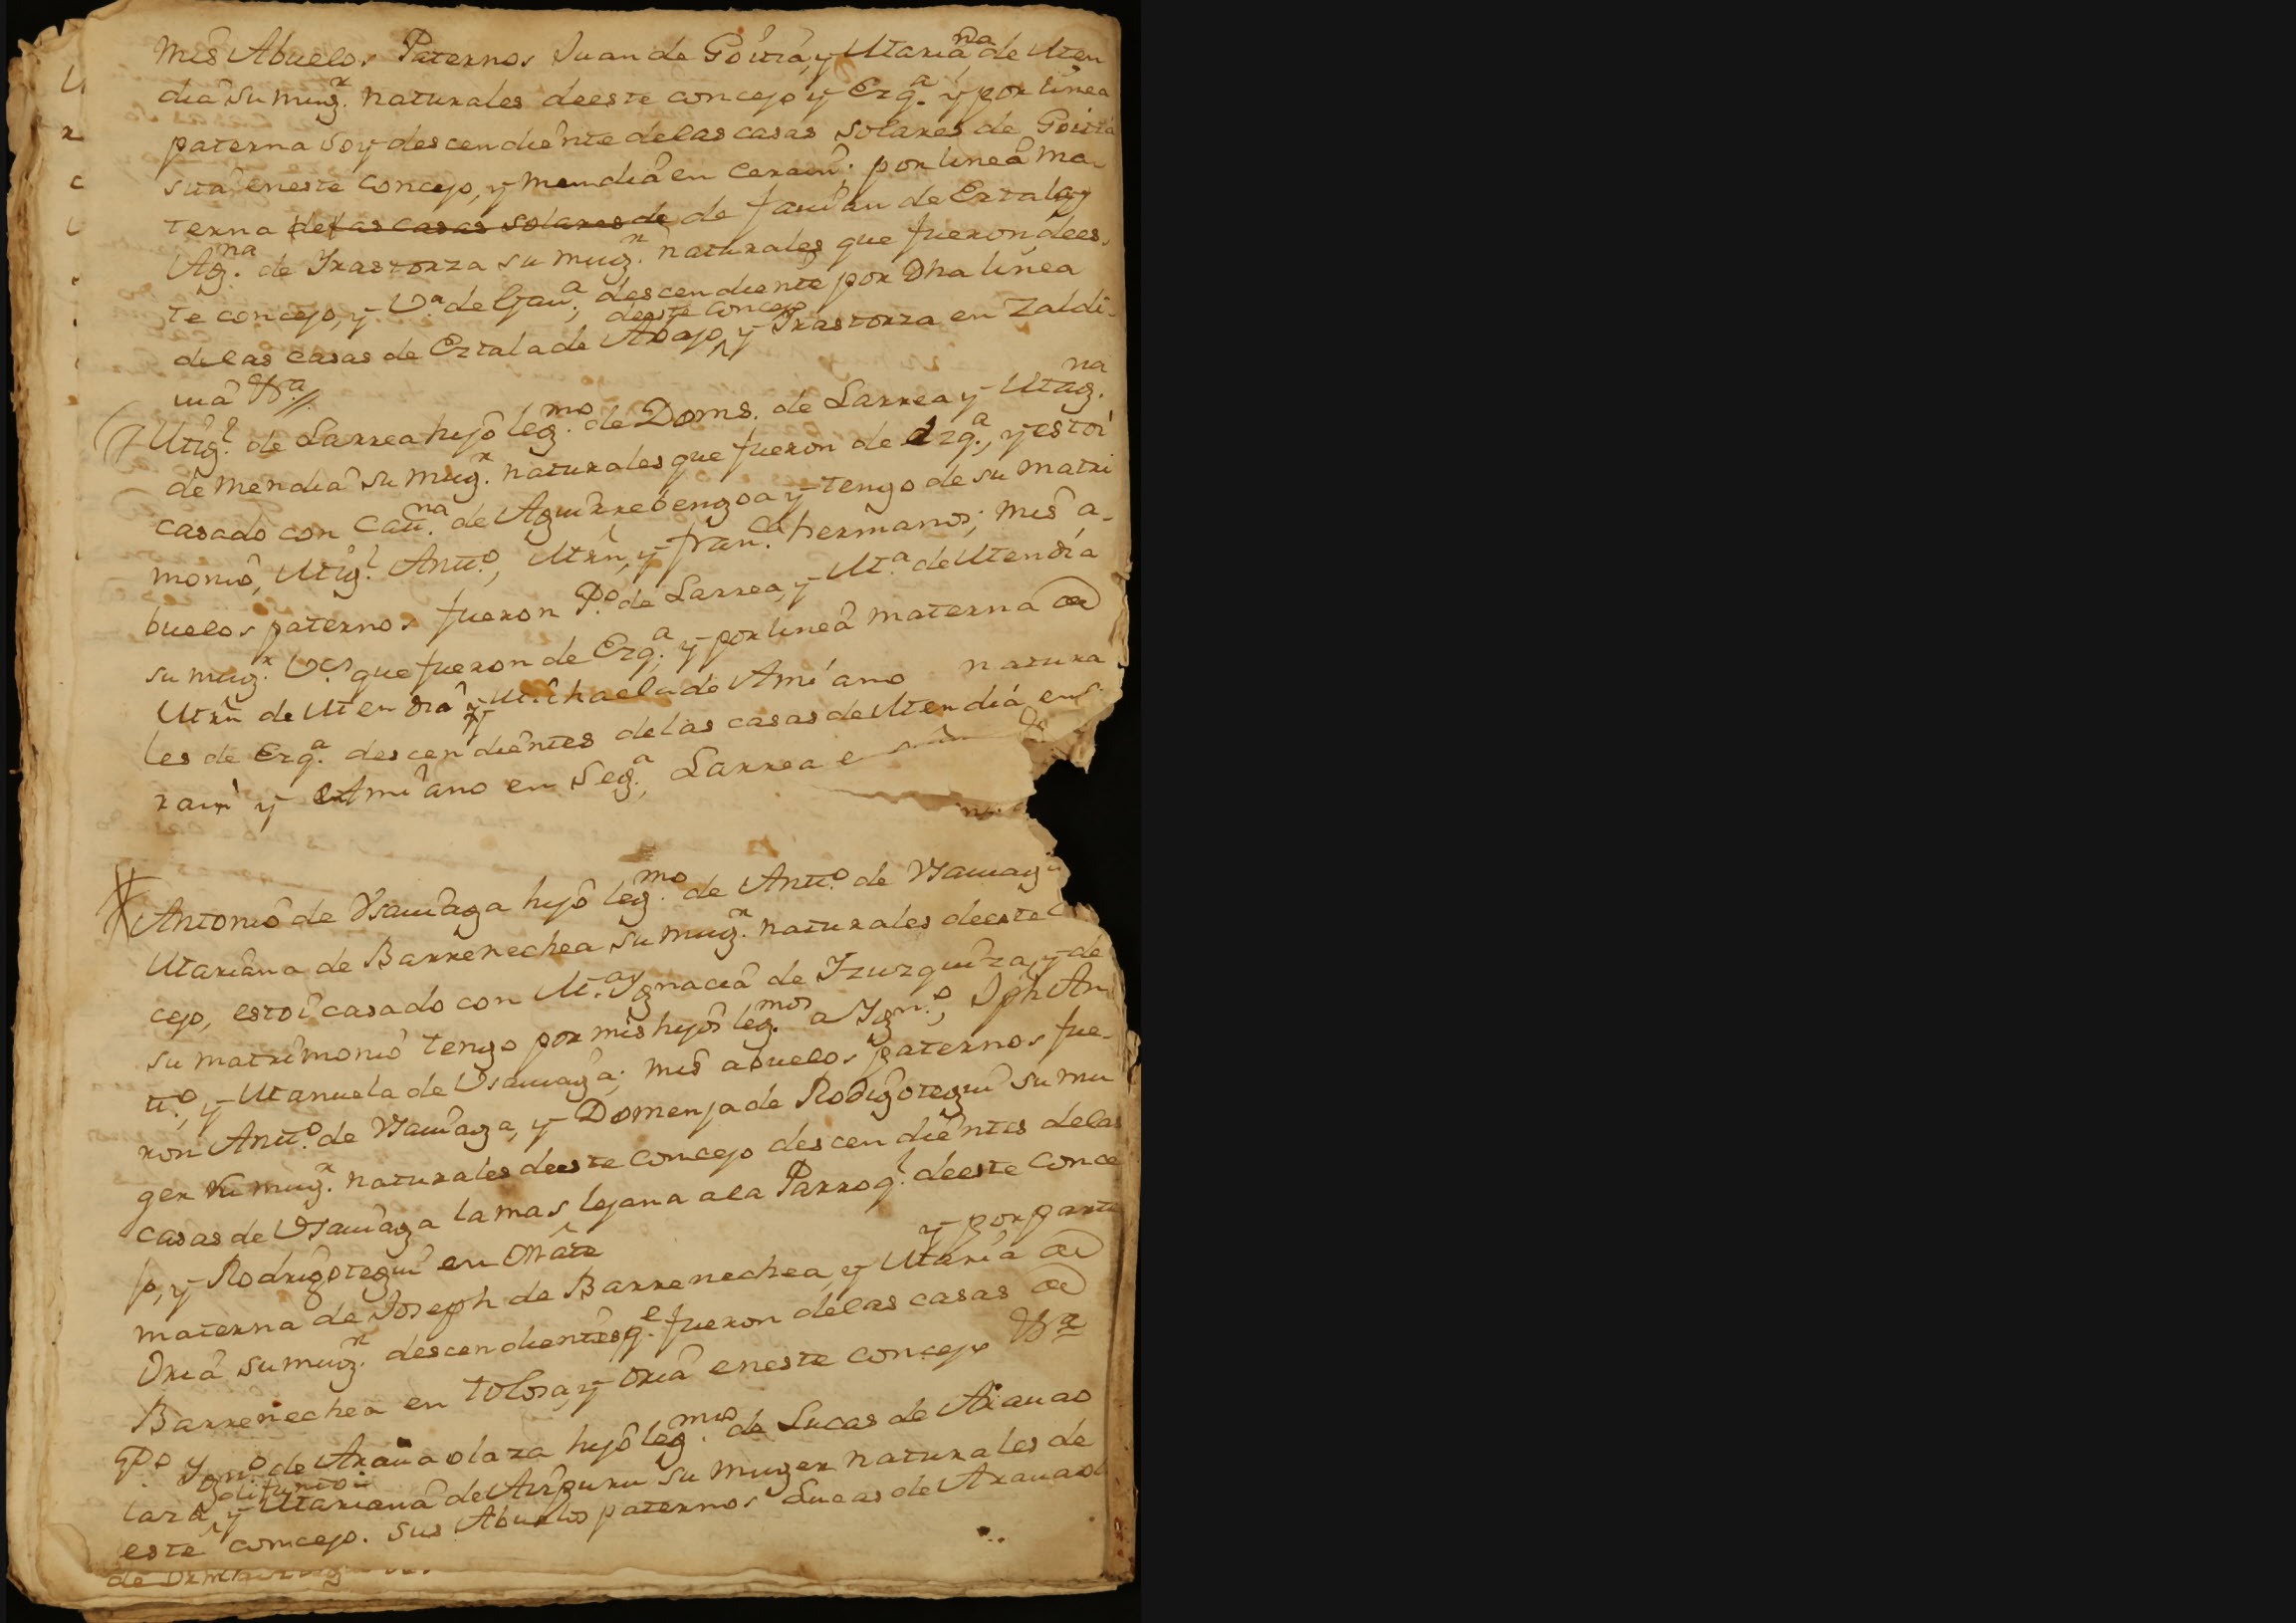 mis Abuelos Paternos Juan de Goitia, y Mariana de Men
dia su mug.r naturales deeste concejo y Ezq.a y por linea
paterna soy descendiente delas casas solares de Goitia
sita en este concejo, y mendia en Cerain. por linea ma-
terna delas casas solares de de fauian de Eztala y
Ag.na de Yrastorza su mug.r naturales que fueron dees-
te concejo, y V.a de Gau.a, descendiente por Dha linea
delas casas de Eztala de Abajo deeste concejo y Yrastorza en Zaldi-
uia V.a//.
Mig.l de Larrea hijo leg.mo de Doms. de Larrea y Mag.na
de mendia su mug.r naturales que fueron de Ezq.a, y estoi
casado con Cat.na de Aguirrebengoa y tengo de su matri
monio, Mig.l Antt.o, Mrn, y fran.ca hermanos; mis a-
buelos paternos fueron P.o de Larrea, y M.a de Mendia
su mug.r V.os que fueron de Ezq.a, y por linea materna de
Mrn de Mendia y Michaela de Amiano natura
les de Ezq.a descendientes delas casas de Mendia en
rain y Amiano en Seg.a, Larrea e
Antonio de Vsauiaga hijo leg.mo de Antt.o de Vsauiag
Mariana de Barrenechea su mug.r naturales deeste
cejo, estoi casado con M.a Ygnacia de Yzuzquiza, y de
su matrimonio tengo por mis hijos leg.mos a Ygn.o, Jph An
tt.o, y Manuela de Vsauiaga; mis abuelos paternos fue-
ron Antt.o de Vsauiaga, y Domenja de Rodigotegui su mu
ger su mug.r naturales deeste concejo descendientes delas
casas de Vsauiaga la mas lejana ala Parroq.l deeste conce
jo, y Rodrigotegui en Oñate y por parte
materna de Joseph de Barrenechea, y Maria de
Oria su mug.r descendientes q.e fueron delas casas de
Barrenechea en Tolosa, y Oria eneste concejo V.a
P.o Ygn.o de Arauaolaza hijo leg.mo de Lucas de Arauao
laza difunto y Mariana de Aizpuru su muger naturales de
este concejo. sus Abuelos paternos Lucas de Arauaol